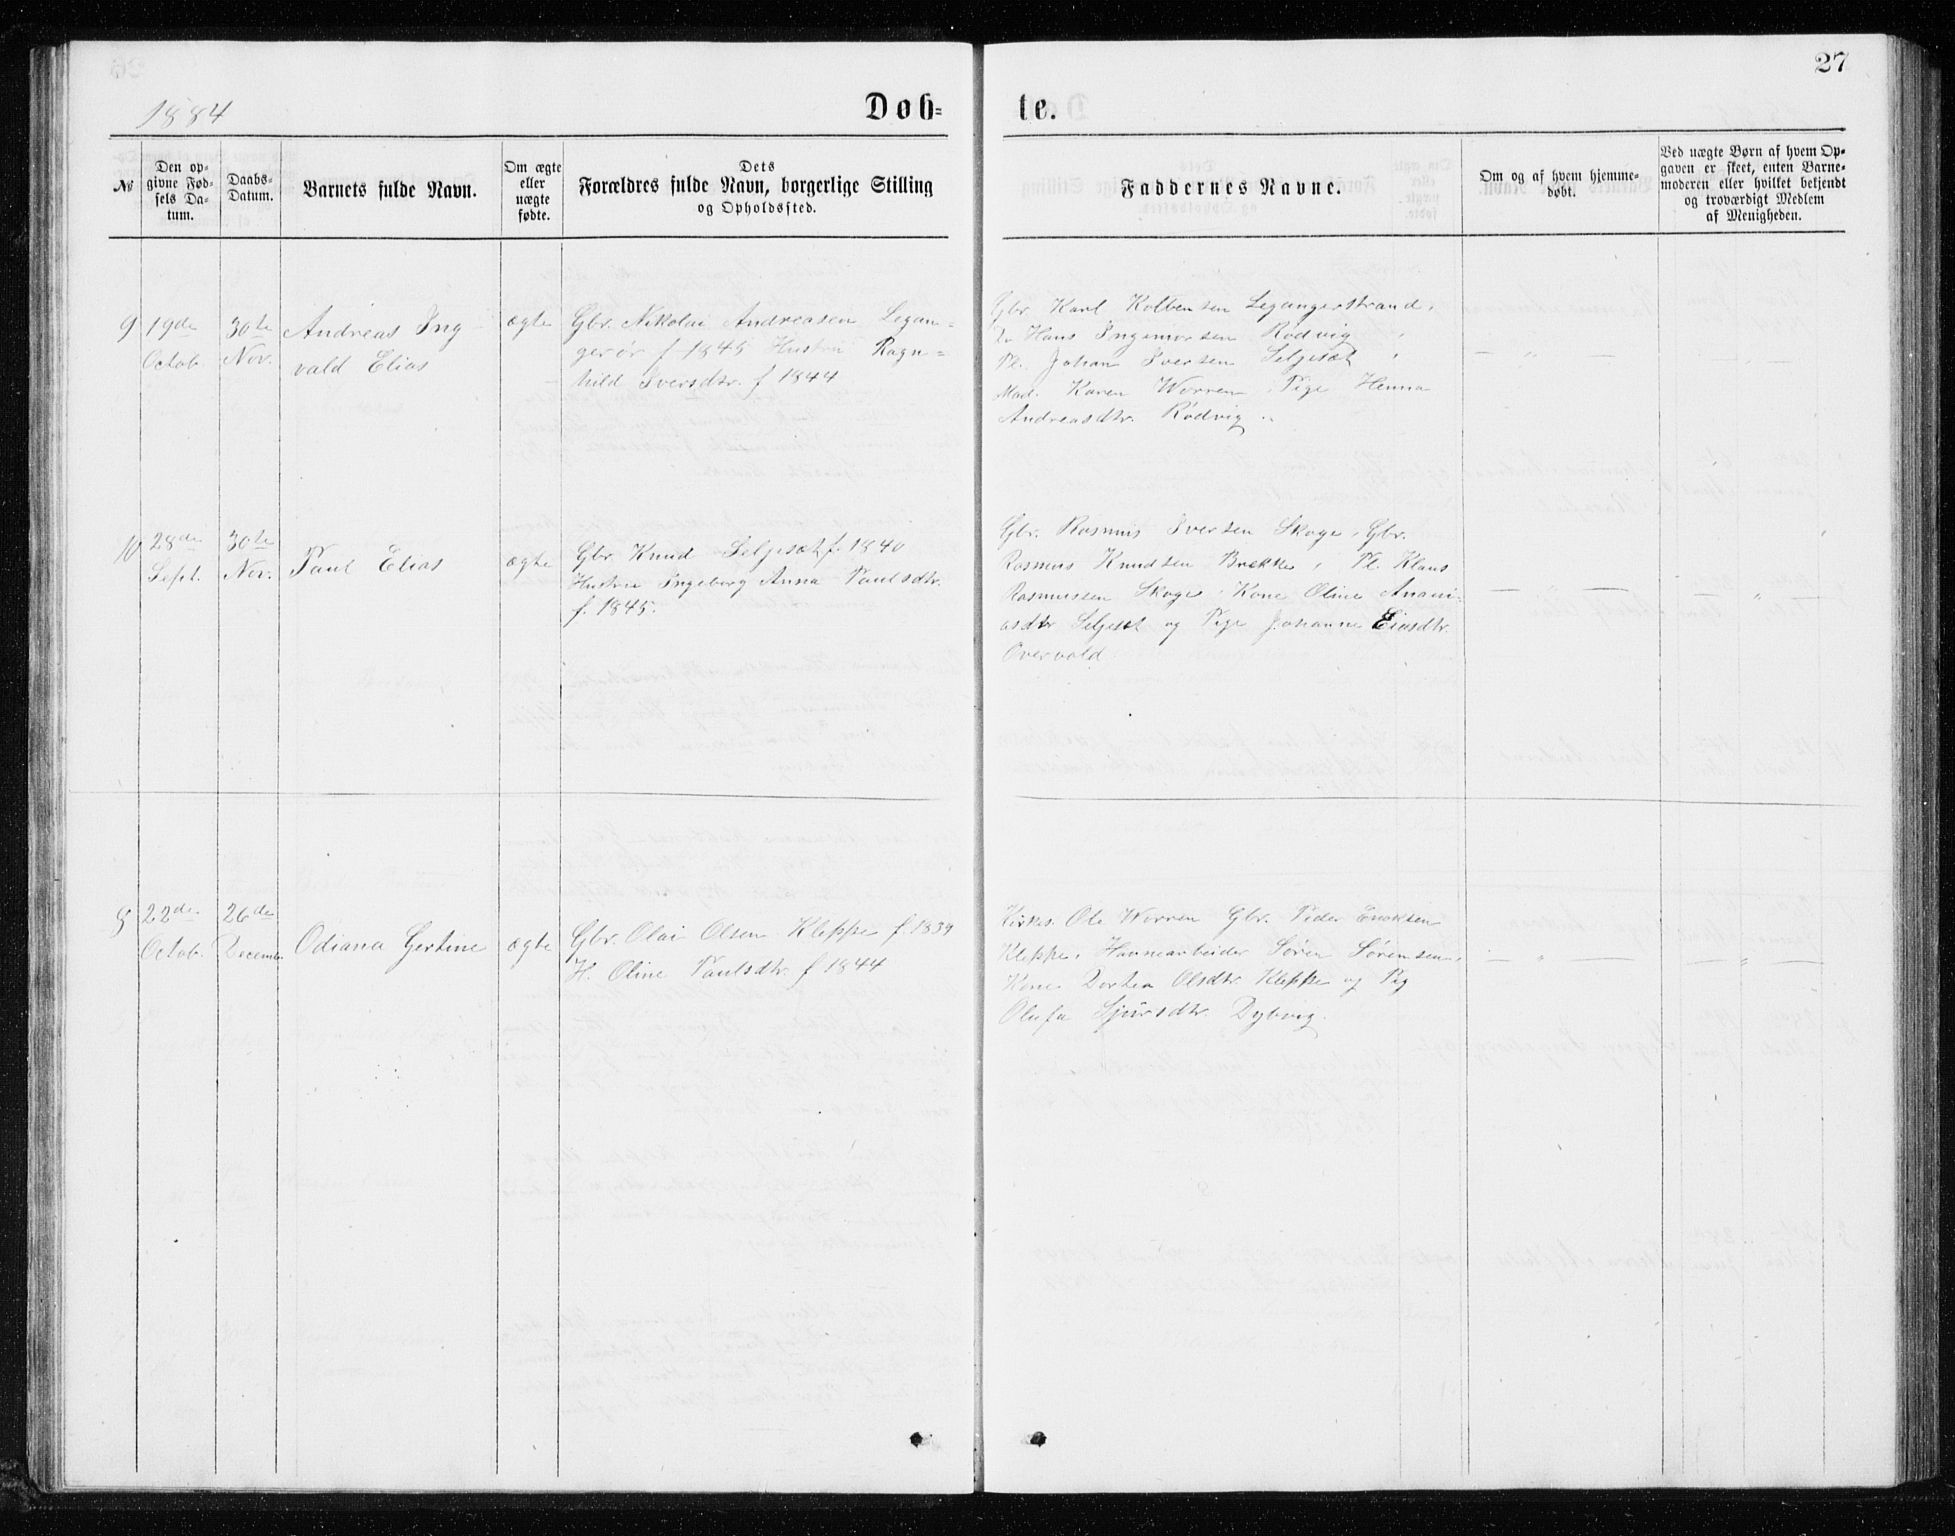 27
1884
Døb-
te.
№
Den op-
givne Fød-
sels Da-
tum.
Daabs-
Datum.
Barnets fulde Navn.
Om ægte
eller
uægte
fødte.
Dets
Forældres fulde Navn, borgerlige Stilling
og Opholdssted.
Faddernes Navne.
Om og af hvem hjemme-
døbt.
Ved uægte Børn af hvem Op-
gaven er skeet, enten Barne-
moderen eller hvilket bekjendt
og troværdigt Medlem
af Menigheden.
9
19de
Octob.
30te
Nov.
Andreas Ing
vald Elias
ægte
Gbr. Nikolai Andreasen Legan-
gerør f 1845 Hustru Ragn-
hild Iversdtr. f 1844
Gbr. Karl Kolbensen Legangerstrand,
Do Hans Ingemorsen Rødvig,
Pl. Johan Iversen Seljeset,
Mad. Karen Worren, Pige Henna
Andreasdtr. Rødvig.
— " —
10
28de
Sept.
30te
Nov.
Paul Elias
ægte
Gbr. Knud Seljeset f. 1840
Hustru Ingeborg Anna Paulsdtr.
f. 1845.
Gbr. Rasmus Iversen Skoge, Gbr.
Rasmus Knudsen Brekke, Pl. Klaus
Rasmussen Skoge, Kone Oline Anani-
asdtr Seljeset og Pige Johanne Eliasdtr.
Overvold
— " —
8
22de
Octob.
26de
Decemb.
Odiana Gertine
ægte
Gbr. Olai Olsen Kleppe f. 1839
H. Oline Paulsdtr. f 1844
Kirkes. Ole Worren Gbr. Peder Enoksen
Kleppe, Havnearbeider Søren Sørensen,
Kone Dorthea Olsdtr. Kleppe og Pig
Olufa Sjursdtr. Dybvig.
— " —